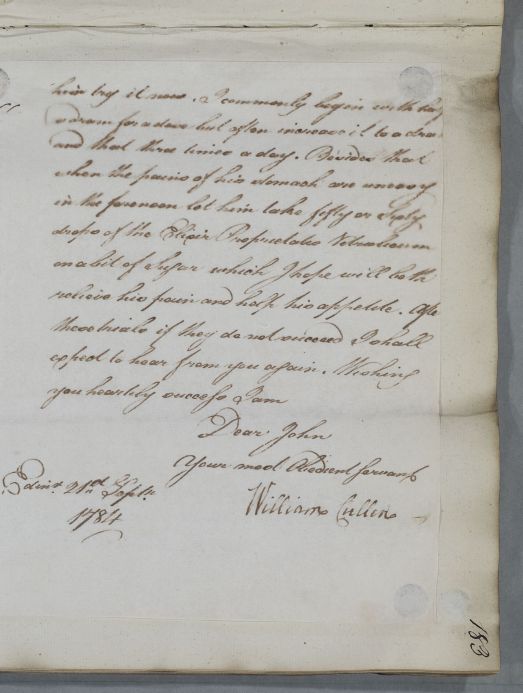 him try it now. I commonly begin with half
a dram for a dose but often increase it to a dram
and that three times a day. Besides that
when the pains of his stomach are uneasy
in the forenoon let him take fifty or sixty
drops of the Elixir Proprietatis Vitriolicum
on a bit of Sugar which I hope will both
relieve his pain and help his appetite. After
these trials if they do not succeed I shall
expect to hear from you again. Wishing
you heartily success I am
Dear John
Your most Obedient Servant
William Cullen
Edinr. 21st Septr.
1784
183